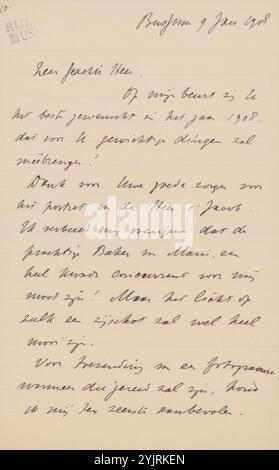 RIJK
MUS
Bussum 9 Jan 1908
Zeer Geachte Heer.
Op mijn beurt zij U
het beste gewenscht in het jaar 1908.
dat voor U gewichtige dingen zal
meêbrengen!
Dank voor Uwe goede zorgen voor
het portret en de Heer Jacob.
Ik verbeeld mij overigens dat de
prachtige Baker in Mani, een
heel harde concurrent voor mij
moet zijn! Maar het licht op
zulk een zijschot zal wel heel
mooi zijn.
Voor toezending van een fotogramme
wanneer die gereed zal zijn, houd
ik mij ten zeerste aanbevolen.
alamy
Image ID: 2YJRKEN
www.alamy.com